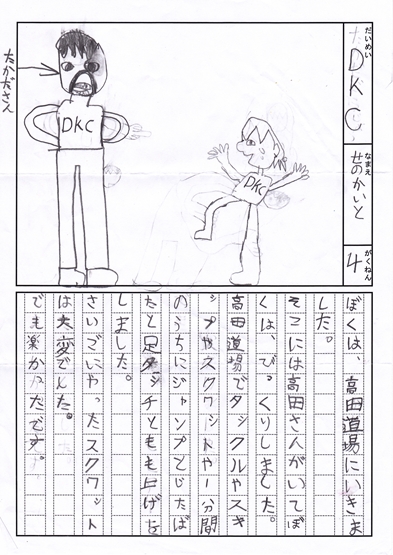 だいめい
DKC
なまえ
せのかいと
がくねん
4
たかださん
DKC
DKC
ぼくは、高田道場にいきま
した。
そこには高田さんがいてぼ
くは、びっくりしました。
高田道場でタックルやスキ
ップやスクワットや一分間
のうちにジャンプとじたば
たと足ダッチともも上げを
しました。
さいごにやったスクワット
は大変でした。
でも楽かったです。